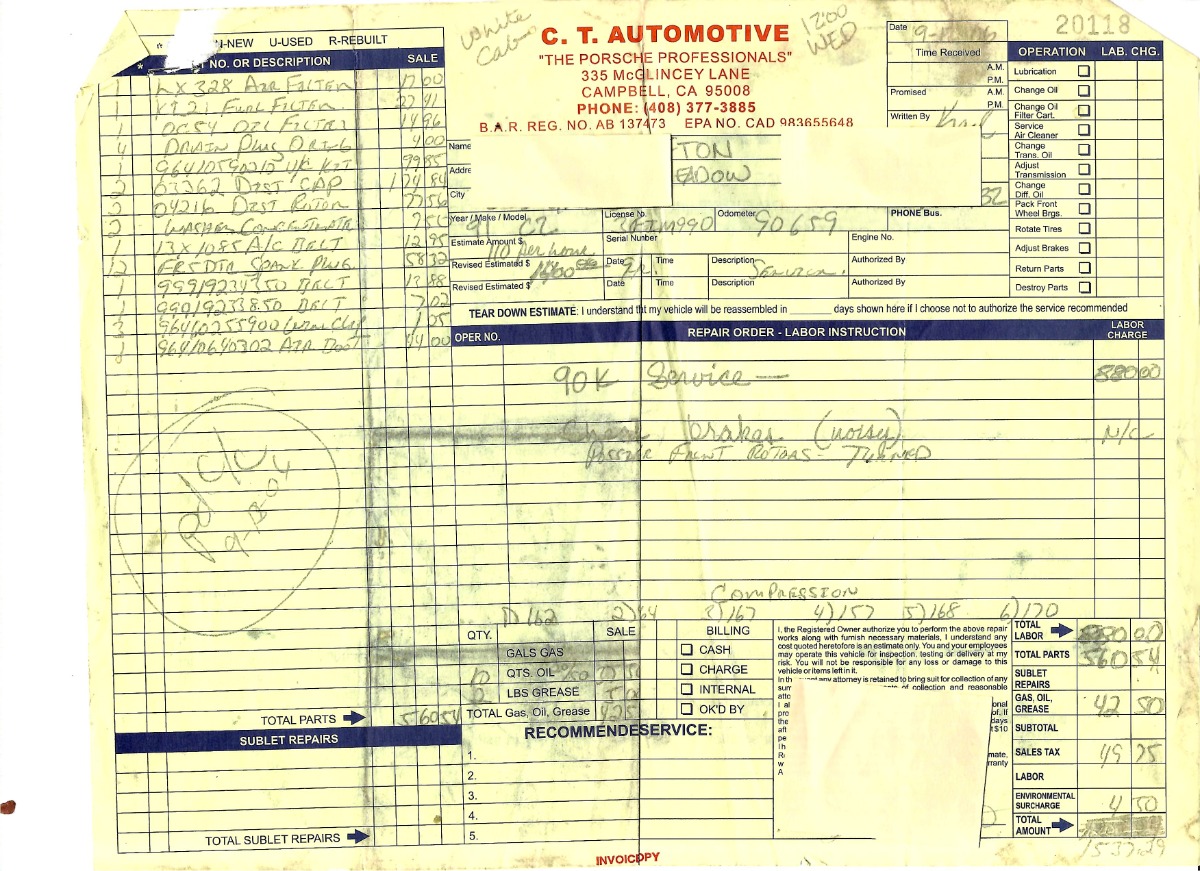 White
Cab
12:00
WED
C. T. AUTOMOTIVE
"THE PORSCHE PROFESSIONALS"
335 McGLINCEY LANE
CAMPBELL, CA 95008
PHONE: (408) 377-3885
B.A.R. REG. NO. AB 137473 EPA NO. CAD 983655648
Date
Time Received
A.M.
P.M.
Promised
A.M.
P.M.
Written By
20118
N-NEW U-USED R-REBUILT
NO. OR DESCRIPTION SALE
1 LX 328 AIR FILTER 17 00
1 FUEL FILTER
1 OC54 OIL FILTER 14 96
4 DRAIN PLUG O RING 4 00
1 KIT 99 85
2 03262 DIST CAP 174 84
2 04216 DIST ROTOR
2 WASHER CONCENTRATE
1 13X1085 A/C BELT 12 95
12 FR5DTR SPARK PLUG 58 32
1 99919234350 BELT 13 88
1 99919233850 BELT 7 02
3 96410255900
1 96410640302 AIR 44 00
Name
TON
Address
EADOW
City
32
Year / Make / Model
91 C2
License No.
Odometer
90659
PHONE Bus.
Estimate Amount $
110 per hour
Serial Number
Engine No.
Revised Estimated $
Date Time
Description
Service
Authorized By
Revised Estimated $
Date Time
Description
Authorized By
TEAR DOWN ESTIMATE: I understand tht my vehicle will be reassembled in ______ days shown here if I choose not to authorize the service recommended
OPERATION LAB. CHG.
Lubrication
Change Oil
Change Oil
Filter Cart.
Service
Air Cleaner
Change
Trans. Oil
Adjust
Transmission
Change
Diff. Oil
Pack Front
Wheel Brgs.
Rotate Tires
Adjust Brakes
Return Parts
Destroy Parts
OPER NO. REPAIR ORDER - LABOR INSTRUCTION LABOR CHARGE
90K Service — 880 00
Check brakes (noisy) N/C
FRONT ROTORS - TURNED
COMPRESSION
1) 162 2) 164 3) 167 4) 157 5) 168 6) 170
QTY. SALE
GALS GAS
10 QTS. OIL
2 LBS GREASE
TOTAL Gas, Oil, Grease
BILLING
CASH
CHARGE
INTERNAL
OK'D BY
I, the Registered Owner authorize you to perform the above repair
works along with furnish necessary materials, I understand any
cost quoted heretofore is an estimate only. You and your employees
may operate this vehicle for inspection, testing or delivery at my
risk. You will not be responsible for any loss or damage to this
vehicle or items left in it.
any attorney is retained to bring suit for collection of any
of collection and reasonable
TOTAL LABOR 880 00
TOTAL PARTS 560 54
SUBLET REPAIRS
GAS, OIL, GREASE 42 50
SUBTOTAL
SALES TAX 49 75
LABOR
ENVIRONMENTAL SURCHARGE 4 50
TOTAL AMOUNT
1537.29
TOTAL PARTS 560 54
SUBLET REPAIRS
TOTAL SUBLET REPAIRS
RECOMMENDESERVICE:
1.
2.
3.
4.
5.
INVOICOPY